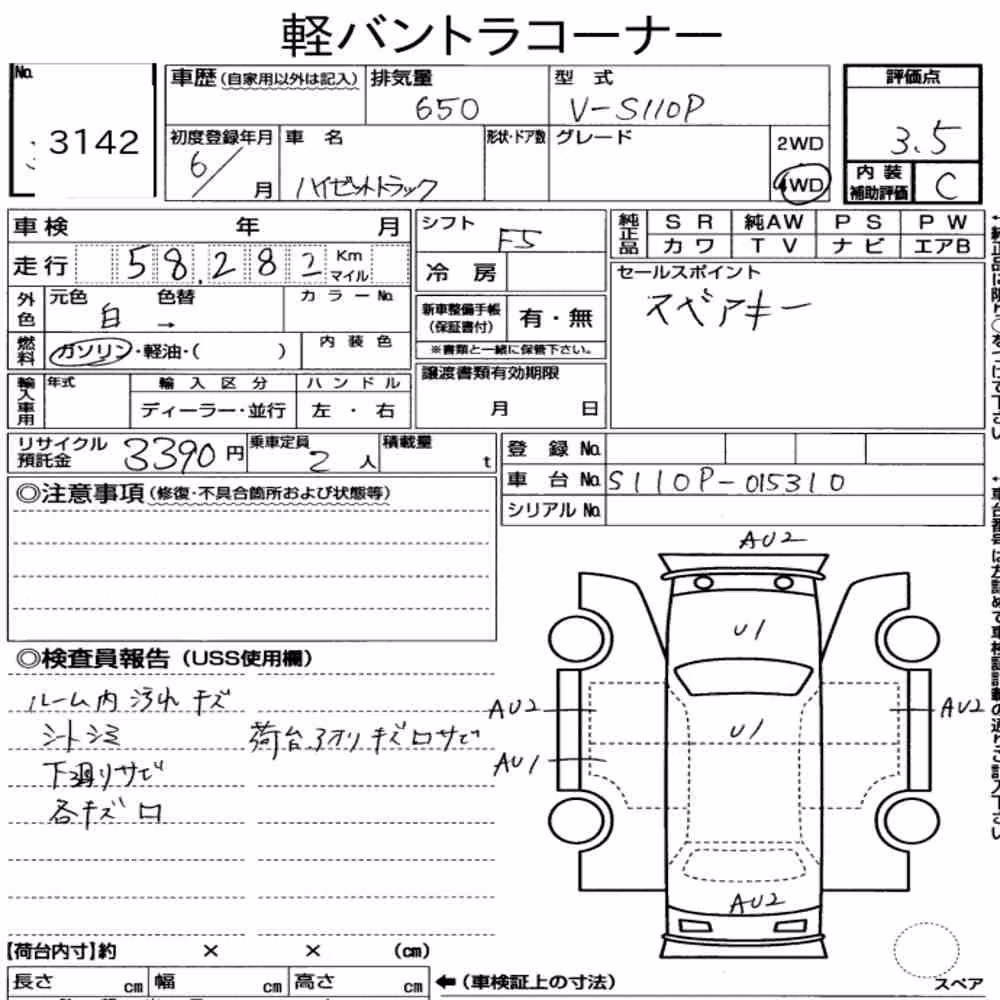 軽バントラコーナー
No. 3142
車歴(自家用以外は記入)
排気量 650
型式 V-S110P
評価点 3.5
内装補助評価 C
初度登録年月 6/ 月
車名 ハイゼットトラック
形状・ドア数
グレード
2WD
4WD
車検 年 月
走行 58,282 Km マイル
外色 元色 白 色替 → カラーNo.
燃料 ガソリン・軽油・( )
内装色
輸入車用 年式
輸入区分 ディーラー・並行
ハンドル 左・右
シフト F5
冷房
新車整備手帳(保証書付) 有・無
※書類と一緒に保管下さい。
譲渡書類有効期限
月 日
純正品 SR 純AW PS PW
カワ TV ナビ エアB
セールスポイント
スペアキー
リサイクル預託金 3390円
乗車定員 2人
積載量 t
登録No.
車台No. S110P-015310
シリアルNo.
◎注意事項(修復・不具合箇所および状態等)
◎検査員報告(USS使用欄)
ルーム内汚れ キズ
シートシミ
下廻りサビ
各キズ凹
荷台アオリキズ凹サビ
AU2
U1
AU2
U1
AU2
AU1
AU2
【荷台内寸】約 × × (cm)
長さ cm 幅 cm 高さ cm
←(車検証上の寸法)
スペア